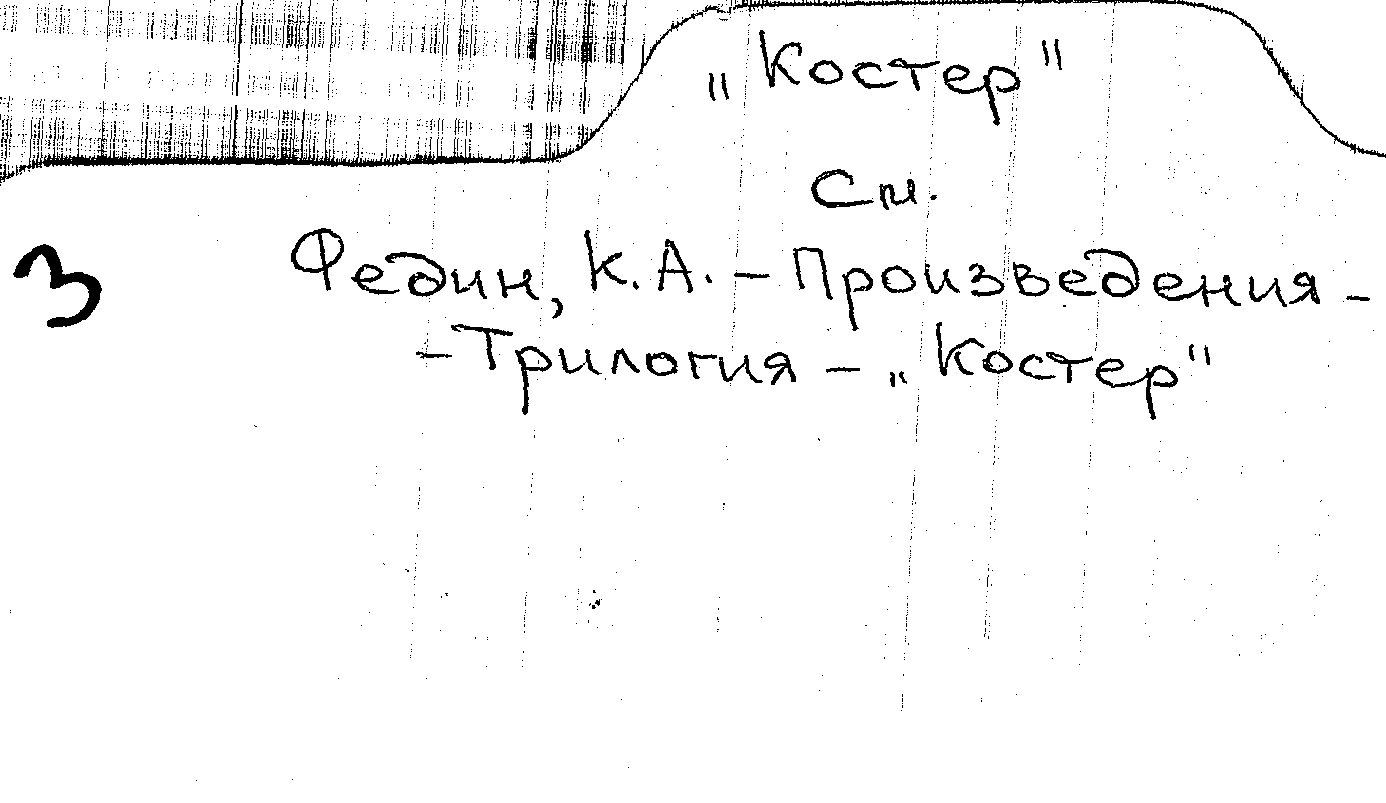 „Костер"
См.
3 Федин, К.А. – Произведения –
– Трилогия – „Костер"